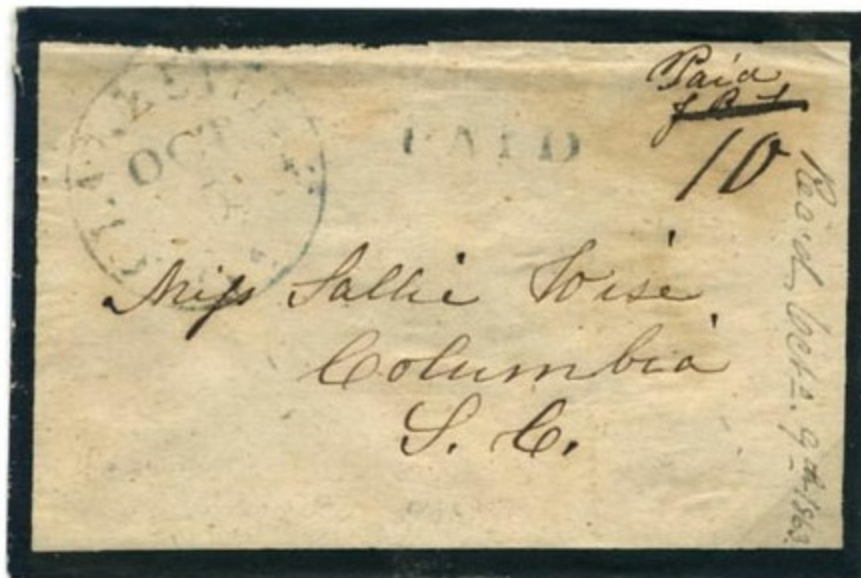 OCT
PAID
Paid
10
Miss Sallie
Columbia
S. C.
Rec'd, Oct. 9th 1863.